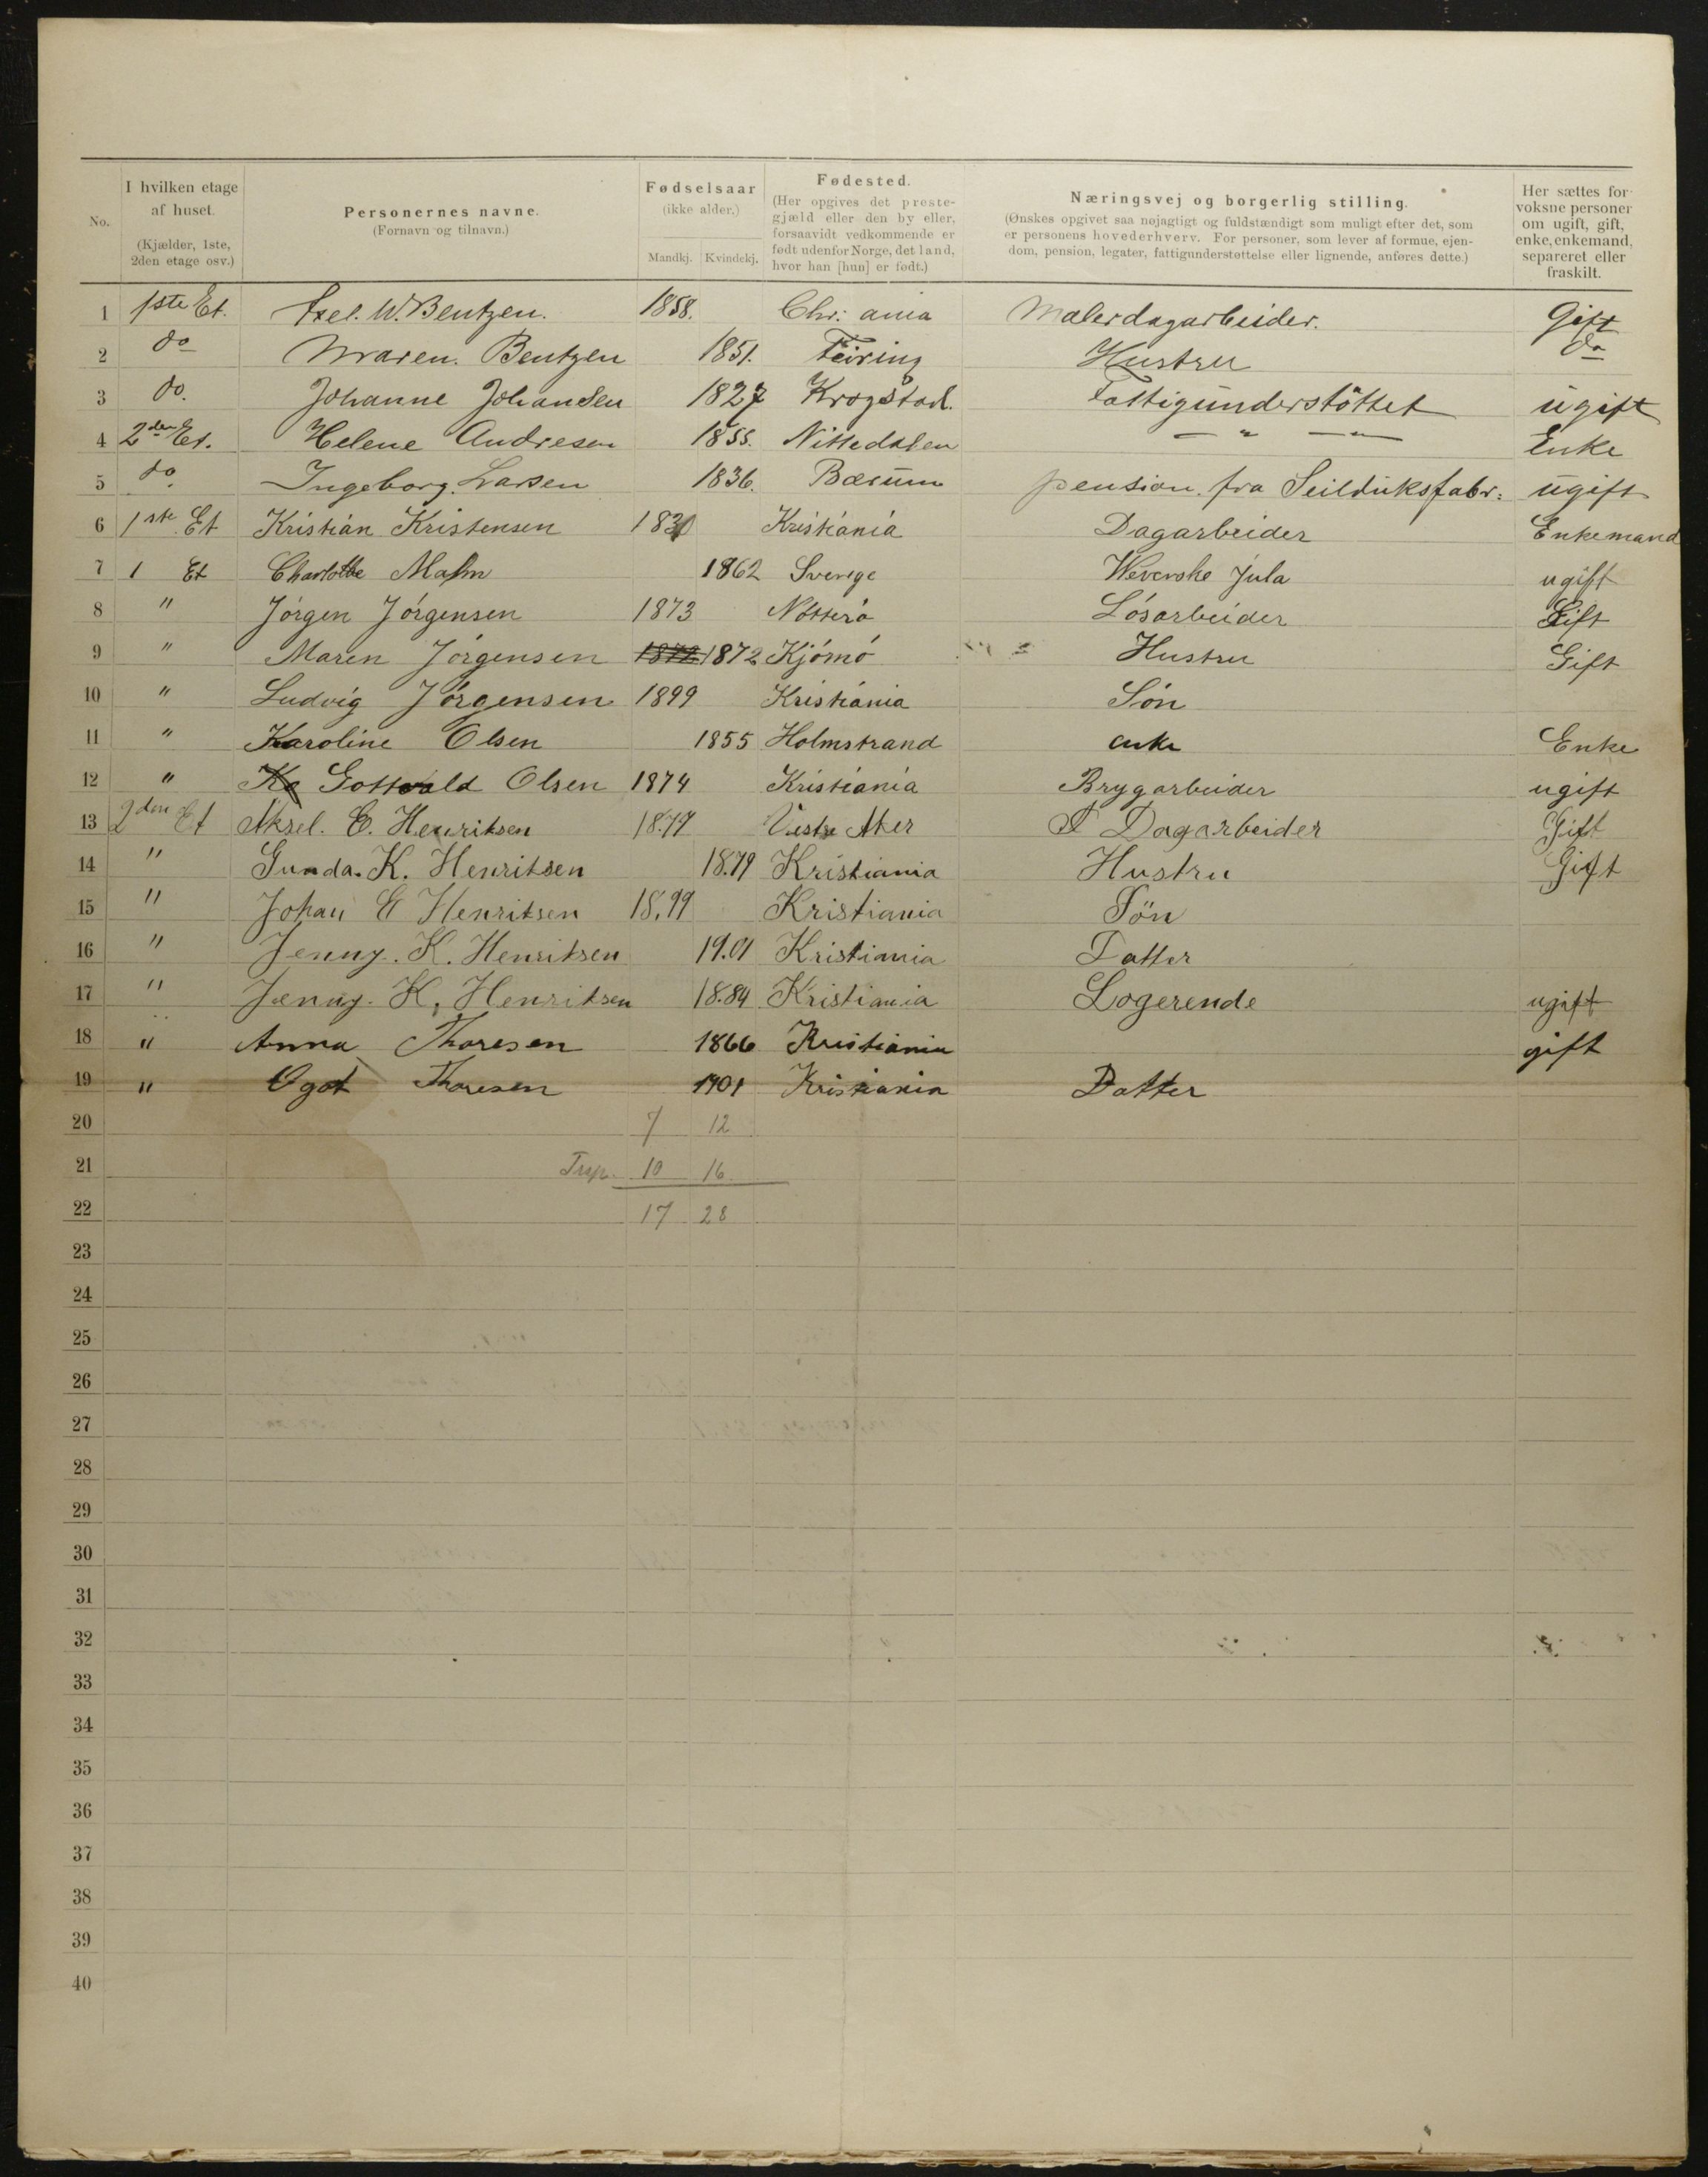 No.
I hvilken etage af huset.
(Kjælder, 1ste, 2den etage osv.)
Personernes navne.
(Fornavn og tilnavn.)
Fødselsaar
(ikke alder.)
Mandkj. Kvindekj.
Fødested.
(Her opgives det prestegjæld eller den by eller, forsaavidt vedkommende er født udenfor Norge, det land, hvor han [hun] er født.)
Næringsvej og borgerlig stilling.
(Ønskes opgivet saa nøjagtigt og fuldstændigt som muligt efter det, som er personens hovederhverv. For personer, som lever af formue, ejendom, pension, legater, fattigunderstøttelse eller lignende, anføres dette.)
Her sættes for voksne personer om ugift, gift, enke, enkemand, separeret eller fraskilt.
1 1ste Et. Axel. W. Bentzen. 1858. Chr: ania Malerdagarbeider. Gift
2 do Maren. Bentzen 1851. Feiring Hustru do
3 do. Johanne Johansen 1827 Krogstad. Fattigunderstöttet ugift
4 2den Et. Helene Andresen 1855. Nittedalen — " — " — Enke
5 do. Ingeborg. Larsen 1836. Bærum pension. fra Seilduksfabr: ugift
6 1ste Et Kristian Kristensen 1830 Kristiania Dagarbeider Enkemand
7 1 Et Charlotte Malm 1862 Sverige Weverske Jula ugift
8 " Jörgen Jörgensen 1873 Nötterö Lösarbeider Gift
9 " Maren Jörgensen 1872 1872 Kjömö Hustru Gift
10 " Ludvig Jörgensen 1899 Kristiania Sön
11 " Karoline Olsen 1855 Holmstrand enke Enke
12 " Ka Gottvald Olsen 1874 Kristiania Brygarbeider ugift
13 2den Et Aksel. E. Henriksen 18.79 Vestre Aker Dagarbeider Gift
14 " Gunda. K. Henriksen 18.79 Kristiania Hustru Gift
15 " Johan E Henriksen 18.99 Kristiania Sön
16 " Jenny. K. Henriksen 19.01 Kristiania Datter
17 " Jenny. K. Henriksen 18.84 Kristiania Logerende ugift
18 " Anna Thoresen 1866 Kristiania gift
19 " Ågot Thoresen 1901 Kristiania Datter
20 7 12
21 10 16
22 17 28
23
24
25
26
27
28
29
30
31
32
33
34
35
36
37
38
39
40